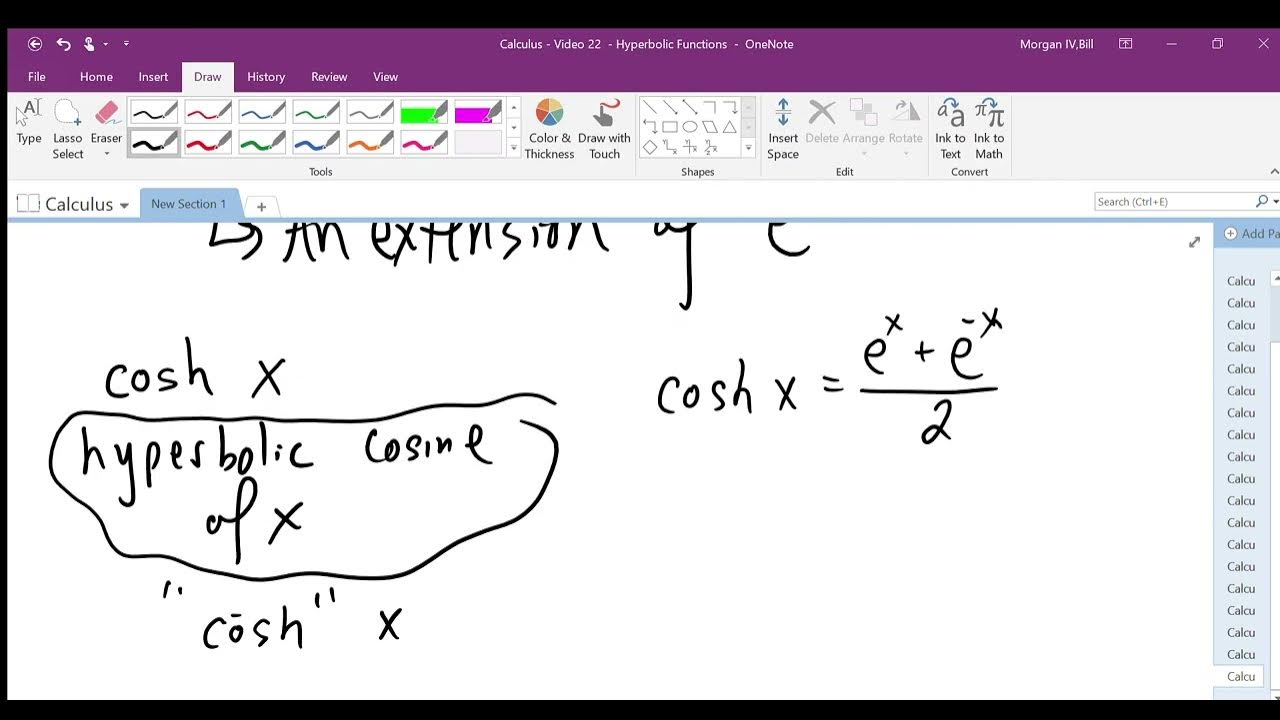 Calculus - Video 22 - Hyperbolic Functions - OneNote
Morgan IV,Bill
File Home Insert Draw History Review View
Type
Lasso Select
Eraser
Color & Thickness
Draw with Touch
Insert Space
Delete
Arrange
Rotate
Ink to Text
Ink to Math
Tools
Shapes
Edit
Convert
Calculus
New Section 1
+
Search (Ctrl+E)
Add Pa
↳ An extension of e
cosh x
hyperbolic cosine
of x
"cōsh" x
cosh x = (e^x + e^-x)/2
Calcu
Calcu
Calcu
Calcu
Calcu
Calcu
Calcu
Calcu
Calcu
Calcu
Calcu
Calcu
Calcu
Calcu
Calcu
Calcu
Calcu
Calcu
Calcu